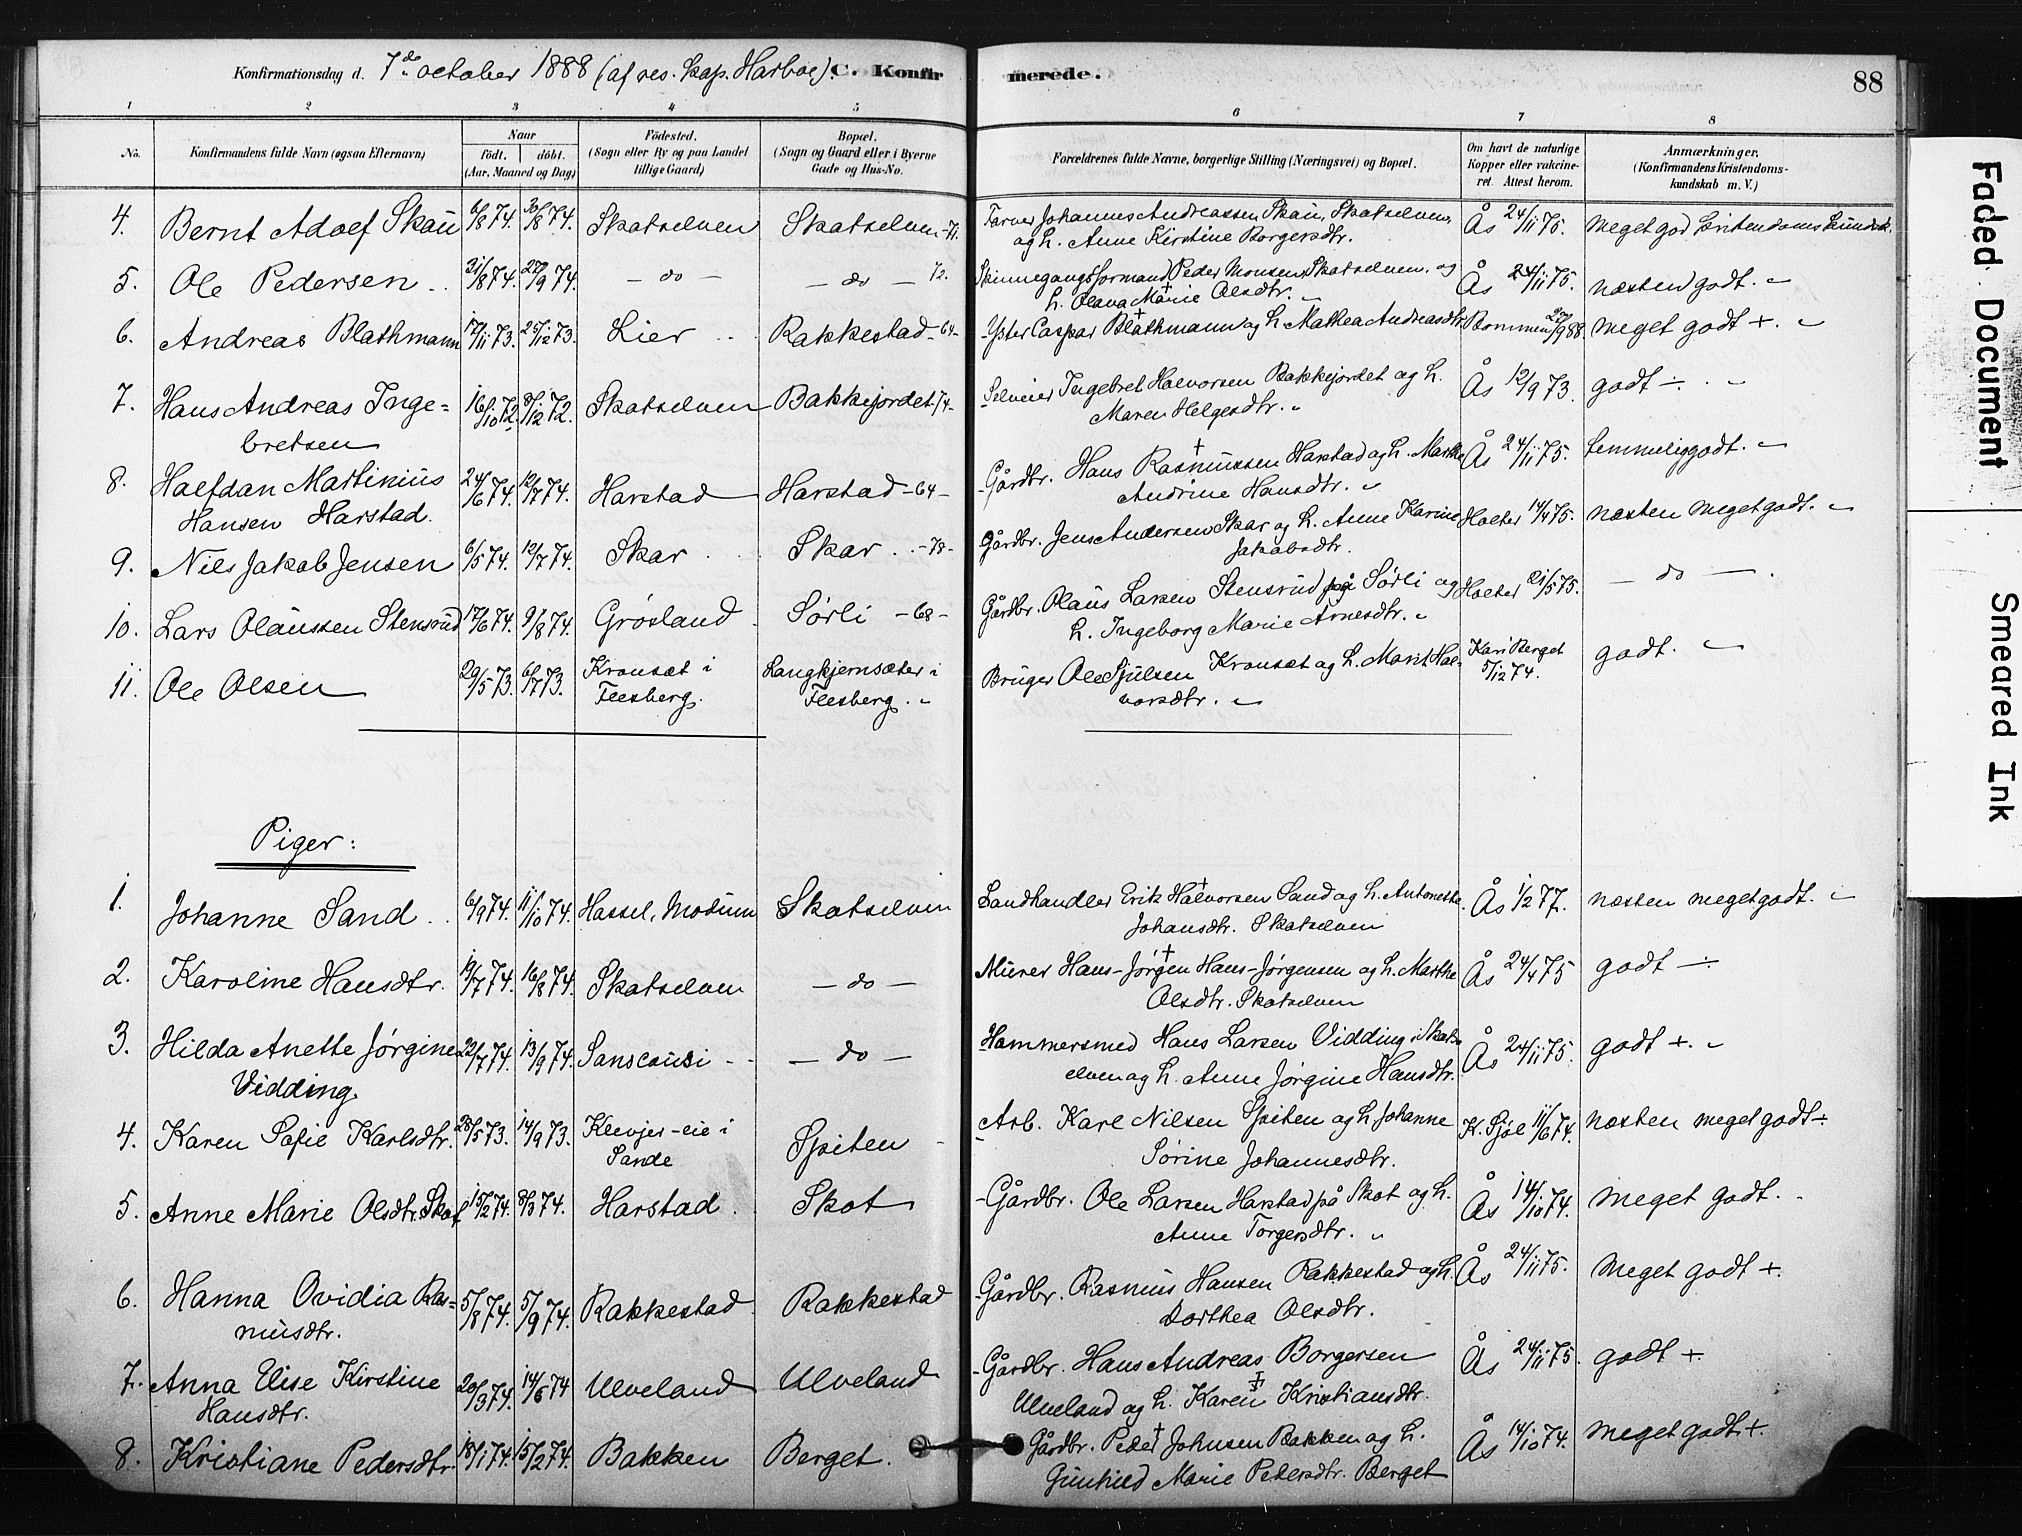 Konfirmationsdag d. 7de october 1888 (af res. kap. Harboe). C. Konfirmerede. 88
1 2 3 4 5 6 7 8
No. Konfirmandens fulde Navn (ogsaa Efternavn) Naar födt. döbt. (Aar, Maaned og Dag) Födested. (Sogn eller By og paa Landet tillige Gaard) Bopæl. (Sogn og Gaard eller i Byerne Gade og Hus-No. Forældrenes fulde Navne, borgerlige Stilling (Næringsvei) og Bopæl. Om havt de naturlige Kopper eller vakcineret. Attest herom. Anmærkninger. (Konfirmandens Kristendomskundskab m. V.)
4. Bernt Adolf Skau 6/8 74. 30/8 74. Skotselven Skotselven -71. Farver Johannes Andreassen Skau, Skotselven, Ås 24/11 75. meget god kristendomskundsk.
og h. Anne Kirstine Borgersdtr.
5. Ole Pedersen 31/8 74. 27/9 74. - do - - do - 72. Skinnegangsformand Peder Monsen, Skotselven, og Ås 24/11 75. næsten godt. "
h. Olava Marie Olsdtr. "
6. Andreas Blathmann 17/11 73. 25/12 73. Lier Rakkestad -64- Yster Caspar Blathmann og h. Mathea Andreasdtr. Bommen 20/9 88. meget godt +. "
7. Hans Andreas Inge= 16/10 72. 8/12 72. Skotselven Bakkejordet -74- Selveier Ingebret Halvorsen Bakkejordet og h. Ås 12/9 73. godt ÷. "
bretsen Maren Helgesdtr. "
8. Halfdan Martinius 24/6 74. 12/7 74. Harstad Harstad -64- Gårdbr. Hans Rasmussen Harstad og h. Marthe Ås 24/11 75. temmelig godt. "
Hansen Harstad. Andrine Hansdtr. "
9. Nils Jakob Jensen 6/5 74. 12/7 74. Skar Skar -78- Gårdbr. Jens Andersen Skar og h. Anne Karine Holter 14/4 75. næsten meget godt. "
Jakobsdtr.
10. Lars Olaussen Stensrud 17/6 74. 9/8 74. Grösland Sørli -68- Gårdbr. Olaus Larsen Stensrud på Sørli og Holter 21/5 75. - do -
h. Ingeborg Marie Arnesdtr. "
11. Ole Olsen 29/5 73. 6/7 73. Kronsæt i Langkjernsæter i Bruger Ole Sjulsen Kronsæt og h. Marit Hal- Kari Berget godt. "
Flesberg. Flesberg. " vorsdtr. " 5/12 74.
Piger:
1. Johanne Sand 6/9 74. 11/10 74. Hassel, Modum Skotselven Landhandler Erik Halvorsen Sand og h. Antonette Ås 1/2 77. næsten meget godt. "
Johansdtr. Skotselven
2. Karoline Hansdtr. 19/7 74. 16/8 74. Skotselven - do - Murer Hans-Jörgen Hans-Jørgensen og h. Marthe Ås 24/4 75 godt ÷
Olsdtr. Skotselven
3. Hilda Anette Jørgine 22/7 74. 13/9 74. Sanscousi - do - Hammersmed Hans Larsen Vidding, Skots- Ås 24/11 75. godt +. "
Vidding. elven og h. Anne Jørgine Hansdtr.
4. Karen Sofie Karlsdtr. 28/5 73. 14/9 73. Klevjer-eie i Spiten Arb. Karl Nilsen Spiten og h. Johanne K. Sjøl 11/6 74. næsten meget godt ÷
Sande Sörine Johannesdtr.
5. Anne Marie Olsdtr. Skot 15/2 74. 8/3 74. Harstad Skot Gårdbr. Ole Larsen Harstad på Skot og h. Ås 14/10 74. meget godt.
Anne Torgersdtr. "
6. Hanna Ovidia Ras= 5/8 74. 5/9 74. Rakkestad Rakkestad Gårdbr. Rasmus Hansen Rakkestad og h. Ås 24/11 75. meget godt +.
musdtr. Dorthea Olsdtr.
7. Anna Elise Kirstine 20/3 74. 14/5 74 Ulveland Ulveland Gårdbr. Hans Andreas Borgersen Ås 24/11 75. godt +
Hansdtr. Ulveland og h. Karen Kristiansdtr.
8. Kristiane Pedersdtr. 18/1 74. 15/2 74. Bakken Berget. Gårdbr. Peder Johnsen Bakken og h. Ås 14/10 74. meget godt +.
Gunhild Marie Pedersdtr. Berget
Faded Document
Smeared Ink